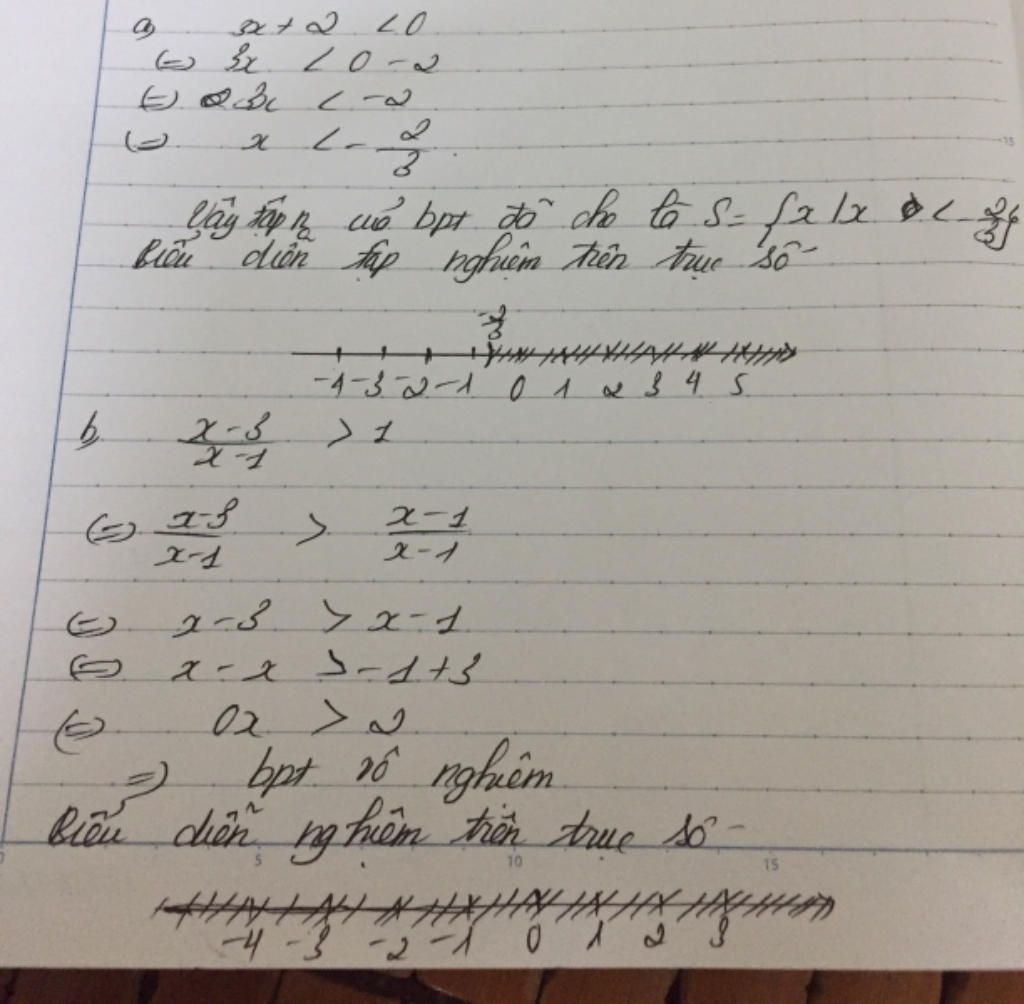 a) 3x + 2 < 0
(=) 3x < 0 - 2
(=) 3x < -2
(=) x < - 2/3
Vậy tập n0 của bpt đã cho là S = {x | x < - 2/3}
Biểu diễn tập nghiệm trên trục số
-2/3
-4 -3 -2 -1 0 1 2 3 4 5
b, x - 3 / x - 1 > 1
(=) x - 3 / x - 1 > x - 1 / x - 1
(=) x - 3 > x - 1
(=) x - x > - 1 + 3
(=) 0x > 2
=) bpt vô nghiệm
Biểu diễn nghiệm trên trục số
5 10 15
-4 -3 -2 -1 0 1 2 3